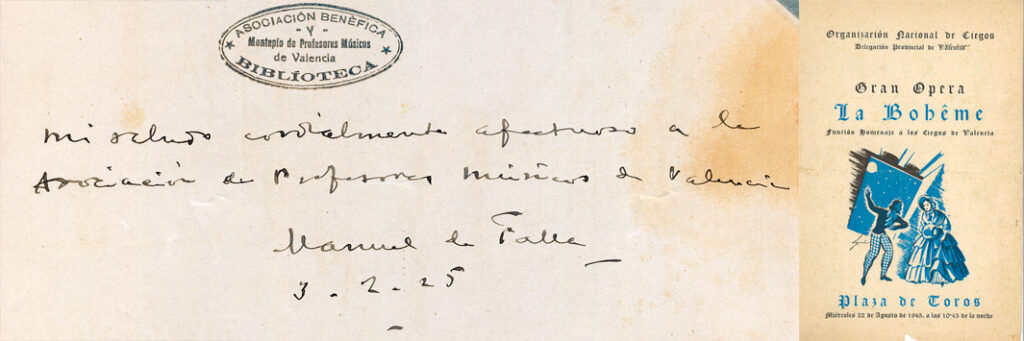 ASOCIACIÓN BENÉFICA
- Y -
Montepío de Profesores Músicos
de Valencia
BIBLIOTECA
Mi saludo cordialmente afectuoso a la
Asociación de Profesores Músicos de Valencia
Manuel de Falla
3-2-25
Organización Nacional de Ciegos
Delegación Provincial de Valencia
Gran Opera
La Bohême
Función Homenaje a los Ciegos de Valencia
Plaza de Toros
Miércoles 22 de Agosto de 1945, a las 10'45 de la noche